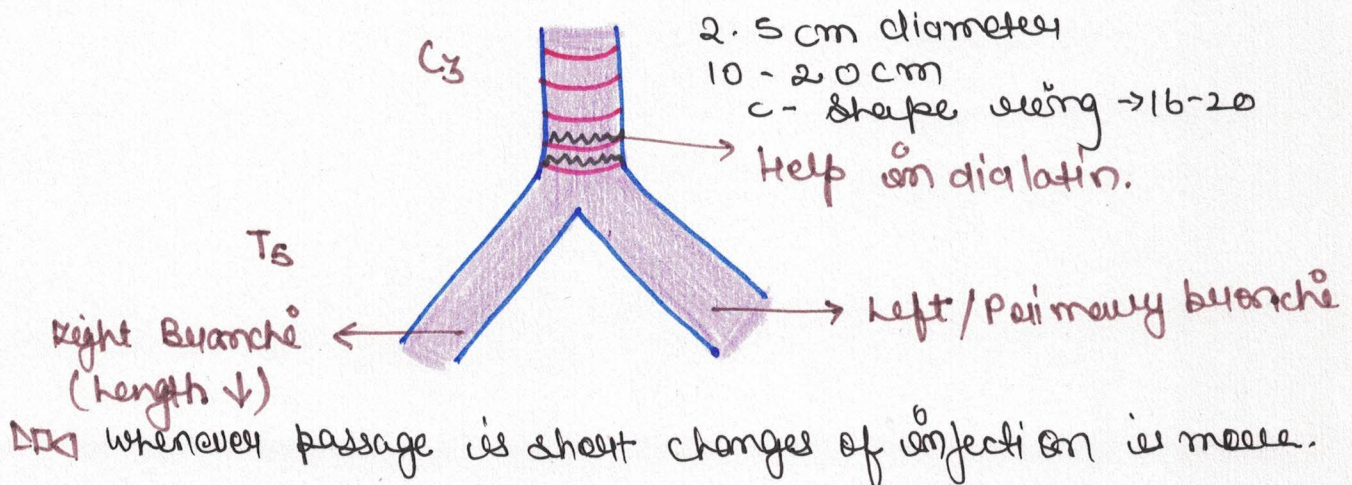 C3
2.5 cm diameter
10 - 20 cm
C - Shape ring → 16-20
Help in dialatin.
T5
Right Bronchi
(Length ↓)
Left / Primary bronchi
whenever passage is short changes of infection is more.